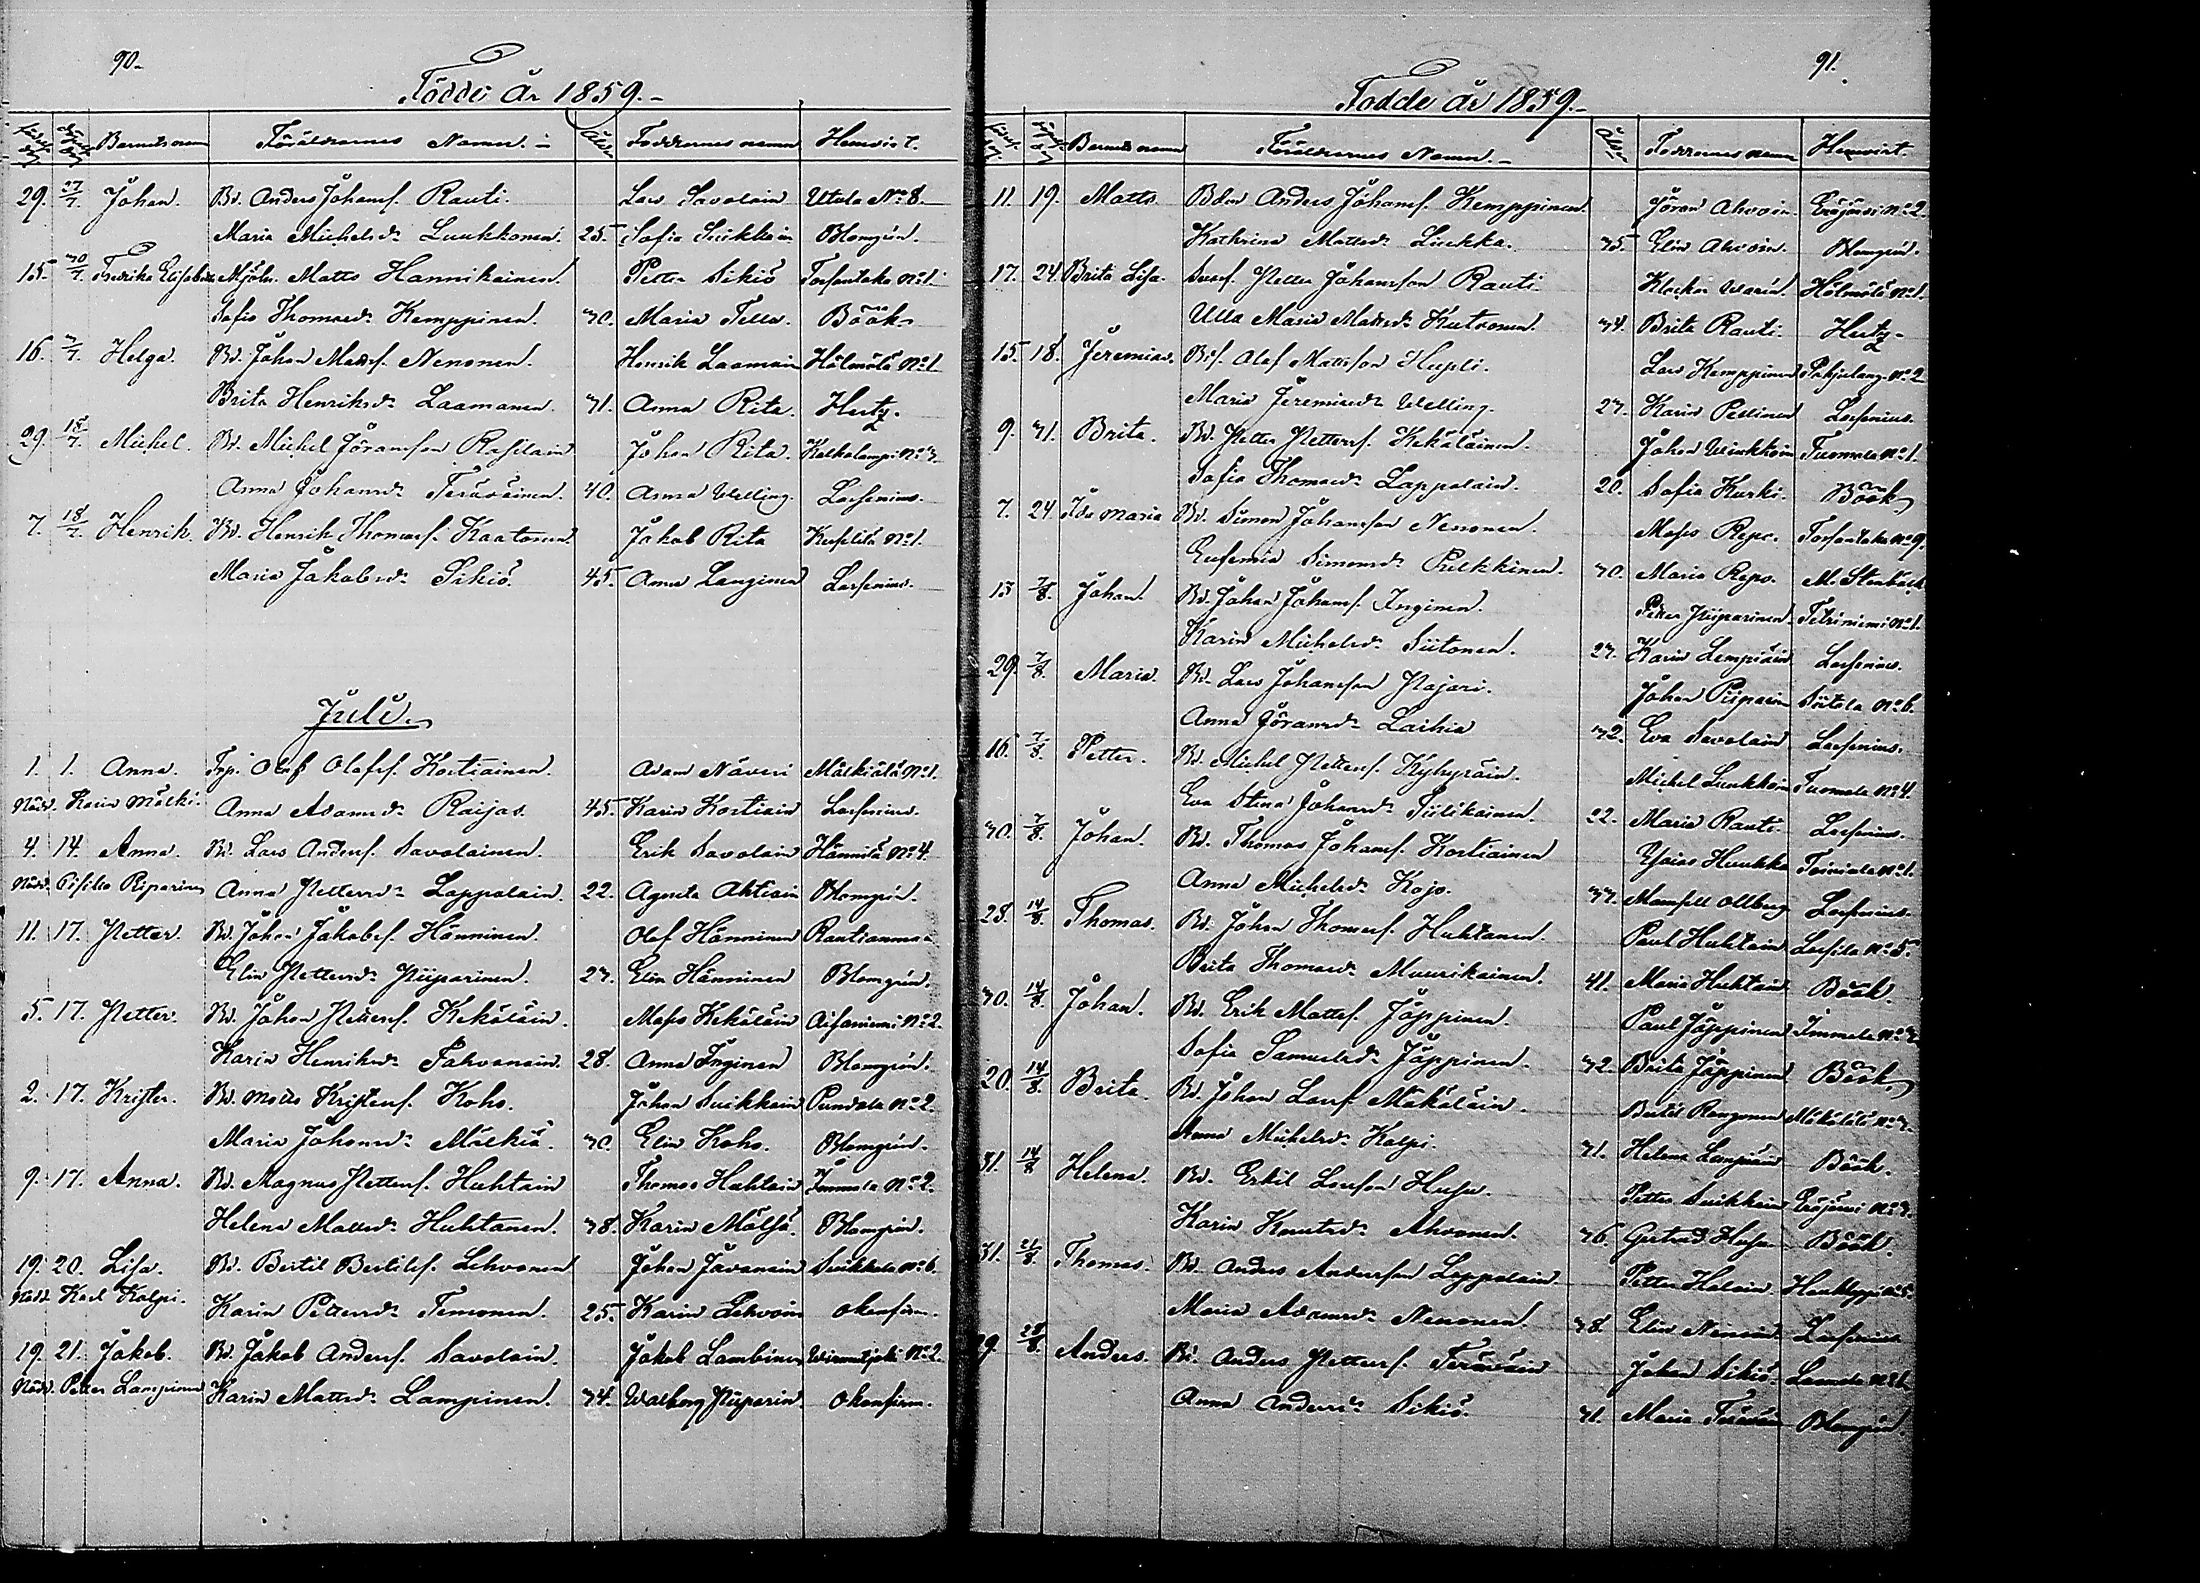 90.
Födde År 1859.
Födelse dag Döpelse dag Barnets namn Föräldrarnes Namn. Ålder Faddrarnes namn Hemvist.
29. 27/7. Johan. Bd. Anders Johansf. Rauti. Lars Savolain Utula No 8.
Maria Michelsdr Luukkonen. 25. Sofia Suikkain Blomgrén.
15. 30/7. Fredrika Elisabeth Mjöln. Matts Hannikainen. Petter Sikiö Torsantaka No 1.
Sofia Thomasdr Kemppinen. 30. Maria Tella. Böök
16. 3/7. Helga. Bd. Johan Mattsf. Nenonen. Henrik Laamain Hölmölä No 1
Brita Henriksdr Laamanen. 31. Anna Rita. Hertz.
29. 18/7. Michel. Bd. Michel Göransson Rasilain Johan Rita. Kalkolampi No 3.
Anna Johansdr Teräväinen. 40. Anna Welling. Lorsenius.
7. 18/7. Henrik. Bd. Henrik Thomasf. Kaatonen. Jakob Rita No 1.
Maria Jakobsdr Sikiö. 45. Anna Langinen Lorsenius.
Juli.
1. 1. Anna. Trp. Olof Olofsf. Kortiainen. Adam Näveri Mälkiälä No 1.
Nöddr. Karin Mälki. Anna Adamsdr Raijas. 45. Karin Kortiain Lorsenius.
4. 14. Anna. Bd. Lars Andersf. Savolainen. Erik Savolain Hännilä No 4.
Nöddr. Piiparinen Anna Pettersdr Lappalain. 22. Agneta Ahtiain Blomgrén.
11. 17. Petter. Bd. Johan Jakobsf. Hänninen. Olof Hänninen Rautianmaa
Elin Pettersdr Piiparinen. 23. Elin Hänninen Blomgrén.
5. 17. Petter. Bd. Johan Pettersf. Kekäläin. Moses Kekäläin No 2.
Karin Henriksdr Pahvanain. 28. Anna Inginen Blomgrén.
2. 17. Krister. Bd. Matts Kristersf. Koho. Johan Suikkain Pundala No 2.
Maria Johansdr Mälkiä. 30. Elin Koho. Blomgrén.
9. 17. Anna. Bd. Magnus Pettersf. Huhtain Thomas Huhtain Immola No 2.
Helena Mattsdr Huhtanen. 38. Karin Mälsä. Blomgrén.
19. 20. Lisa. Bd. Bertil Bertilsf. Lehvonen Johan Javanain Suikkala No 6.
Nöddr. Karl Kolpi. Karin Pettersdr Temonen. 25. Karin Lehvoin okonfirm.
19. 21. Jakob. Bd. Jakob Andersf. Savolain. Jakob Lambinen No 2.
Nöddr. Petter Lampinen Karin Mattsdr Lampinen. 34. Walborg Piiparin. okonfirm.
91.
Födde år 1859.
Födelse dag Döpelse dag Barnets namn Föräldrarnes Namn. Ålder Faddrarnes namn Hemvist.
11. 19. Matts Bdson Anders Johansf. Kemppinen. Jöran Ahvoin. Eräjärvi No 2.
Kathrina Mattsdr Liukka. 35. Elin Ahvoin. Blomgrén.
17. 24. Brita Lisa. Petter Johansson Rauti Klockar Hölmölä No 1.
Ulla Maria Mattsdr Kutvonen. 34. Brita Rauti. Hertz
15. 18. Jeremias. Bds. Olof Mattsson Hupli. Lars Kemppinen Pohjalang. No 2
Maria Jeremiasdr Welling. 27. Karin Pellinen Lorsenius.
9. 31. Brita. Bd. Petter Pettersf. Kekäläinen. Johan Tuomala No 1.
Sofia Thomasdr Lappalain. 20. Sofia Kurki. Böök
7. 24. Ida Maria Bd. Simon Johansson Nenonen. Moses Repo. Torsantaka No 9.
Eufemia Simonsdr Pulkkinen. 30. Maria Repo. M. Stenbäck
13 7/8. Johan. Bd. Johan Johansf. Inginen. Petter Piiparinen Tetriniemi No 1.
Karin Michelsdr Siitonen. 27. Karin Lempiäin Lorsenius.
29. 7/8. Maria. Bd. Lars Johansson Pajari. Johan Piiparin Siitola No 6.
Anna Göransdr Laihia 32. Eva Savolain Lorsenius.
16. 7/8. Petter. Bd. Michel Pettersf. Kyhyräin. Michel Luukkoin Tuomala No 4.
Eva Stina Johansdr Tiilikainen. 22. Maria Rauti. Lorsenius.
30. 7/8. Johan. Bd. Thomas Johansf. Kortiainen Esaias Huukka Toiviala No 1.
Anna Michelsdr Kojo. 37. Mamsell Ollberg Lorsenius.
28. 14/8. Thomas. Bd. Johan Thomasf. Huhtanen. Paul Huhtain No 5.
Brita Thomasdr Muurikainen. 41. Maria Huhtain Böök.
30. 14/8. Johan. Bd. Erik Mattsf. Jäppinen. Paul Jäppinen Immola No 3
Sofia Samuelsdr Jäppinen. 32. Brita Jäppinen Böök
20. 14/8. Brita. Bd. Johan Larsf. Mäkäläin. Bertil Rongonen Mäkälälä No 3.
Anna Michelsdr Kolpi. 31. Helena Lempiäin Böök.
31. 14/8 Helena. Bd. Eskil Larsson Husu. Petter Suikkain Eräjärvi No 3.
Karin Knutsdr Ahvonen. 36. Gertrud Husu Böök.
31. 21/8. Thomas. Bd. Anders Andersson Lappalain Petter Halain No 5.
Maria Adamsdr Nenonen. 38. Elin Nenoin Lorsenius
29. 28/8. Anders. Bd. Anders Pettersf. Teräväin Johan Sikiö
Anna Andersdr Sikiö. 31. Maria Teräväin Blomgrén.